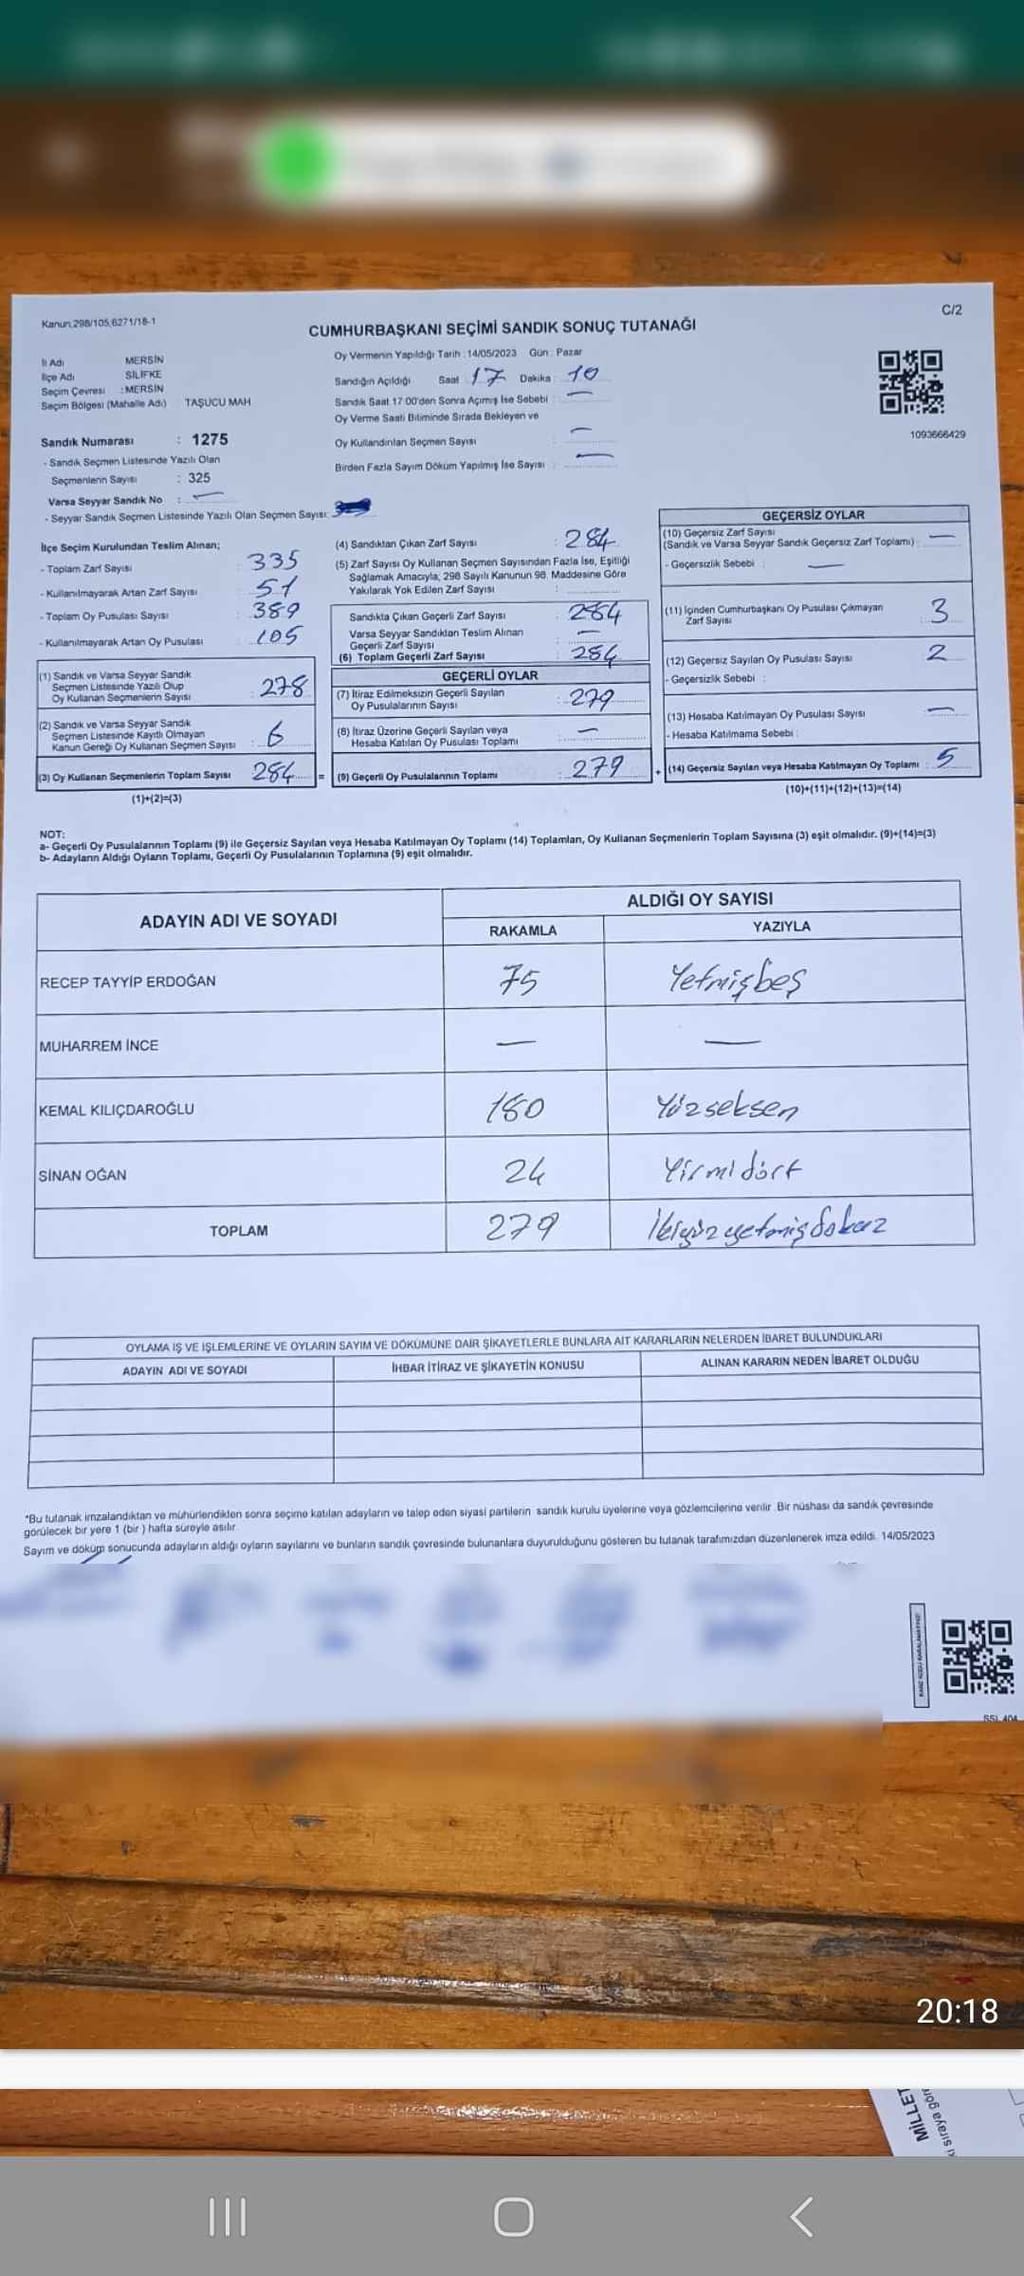 Kanun,298/105,6271/18-1
C/2
CUMHURBAŞKANI SEÇİMİ SANDIK SONUÇ TUTANAĞI
İl Adı MERSİN
İlçe Adı SİLİFKE
Seçim Çevresi : MERSİN
Seçim Bölgesi (Mahalle Adı) TAŞUCU MAH
Oy Vermenin Yapıldığı Tarih : 14/05/2023 Gün : Pazar
Sandığın Açıldığı Saat : 17 Dakika : 10
Sandık Saat 17:00'den Sonra Açımış İse Sebebi : —
Oy Verme Saati Bitiminde Sırada Bekleyen ve
Oy Kullandırılan Seçmen Sayısı —
Birden Fazla Sayım Döküm Yapılmış İse Sayısı : —
1093666429
Sandık Numarası : 1275
- Sandık Seçmen Listesinde Yazılı Olan
Seçmenlerin Sayısı : 325
Varsa Seyyar Sandık No : —
- Seyyar Sandık Seçmen Listesinde Yazılı Olan Seçmen Sayısı:
İlçe Seçim Kurulundan Teslim Alınan;
- Toplam Zarf Sayısı : 335
- Kullanılmayarak Artan Zarf Sayısı : 51
- Toplam Oy Pusulası Sayısı : 389
- Kullanılmayarak Artan Oy Pusulası : 105
(1) Sandık ve Varsa Seyyar Sandık
Seçmen Listesinde Yazılı Olup
Oy Kullanan Seçmenlerin Sayısı : 278
(2) Sandık ve Varsa Seyyar Sandık
Seçmen Listesinde Kayıtlı Olmayan
Kanun Gereği Oy Kullanan Seçmen Sayısı : 6
(3) Oy Kullanan Seçmenlerin Toplam Sayısı 284 =
(1)+(2)=(3)
(4) Sandıktan Çıkan Zarf Sayısı : 284
(5) Zarf Sayısı Oy Kullanan Seçmen Sayısından Fazla İse, Eşitliği
Sağlamak Amacıyla, 298 Sayılı Kanunun 98. Maddesine Göre
Yakılarak Yok Edilen Zarf Sayısı :
Sandıkta Çıkan Geçerli Zarf Sayısı : 284
Varsa Seyyar Sandıktan Teslim Alınan
Geçerli Zarf Sayısı : —
(6) Toplam Geçerli Zarf Sayısı : 284
GEÇERLİ OYLAR
(7) İtiraz Edilmeksizin Geçerli Sayılan
Oy Pusulalarının Sayısı : 279
(8) İtiraz Üzerine Geçerli Sayılan veya
Hesaba Katılan Oy Pusulası Toplamı : —
(9) Geçerli Oy Pusulalarının Toplamı : 279 +
GEÇERSİZ OYLAR
(10) Geçersiz Zarf Sayısı
(Sandık ve Varsa Seyyar Sandık Geçersiz Zarf Toplamı) : —
- Geçersizlik Sebebi : —
(11) İçinden Cumhurbaşkanı Oy Pusulası Çıkmayan
Zarf Sayısı : 3
(12) Geçersiz Sayılan Oy Pusulası Sayısı : 2
- Geçersizlik Sebebi :
(13) Hesaba Katılmayan Oy Pusulası Sayısı : —
- Hesaba Katılmama Sebebi :
(14) Geçersiz Sayılan veya Hesaba Katılmayan Oy Toplamı : 5
(10)+(11)+(12)+(13)=(14)
NOT:
a- Geçerli Oy Pusulalarının Toplamı (9) ile Geçersiz Sayılan veya Hesaba Katılmayan Oy Toplamı (14) Toplamları, Oy Kullanan Seçmenlerin Toplam Sayısına (3) eşit olmalıdır. (9)+(14)=(3)
b- Adayların Aldığı Oyların Toplamı, Geçerli Oy Pusulalarının Toplamına (9) eşit olmalıdır.
ADAYIN ADI VE SOYADI
ALDIĞI OY SAYISI
RAKAMLA YAZIYLA
RECEP TAYYİP ERDOĞAN 75 Yetmişbeş
MUHARREM İNCE — —
KEMAL KILIÇDAROĞLU 180 Yüzseksen
SİNAN OĞAN 24 Yirmidört
TOPLAM 279 İkiyüzyetmişdokuz
OYLAMA İŞ VE İŞLEMLERİNE VE OYLARIN SAYIM VE DÖKÜMÜNE DAİR ŞİKAYETLERLE BUNLARA AİT KARARLARIN NELERDEN İBARET BULUNDUKLARI
ADAYIN ADI VE SOYADI İHBAR İTİRAZ VE ŞİKAYETİN KONUSU ALINAN KARARIN NEDEN İBARET OLDUĞU
*Bu tutanak imzalandıktan ve mühürlendikten sonra seçime katılan adayların ve talep eden siyasi partilerin sandık kurulu üyelerine veya gözlemcilerine verilir. Bir nüshası da sandık çevresinde
görülecek bir yere 1 (bir ) hafta süreyle asılır.
Sayım ve döküm sonucunda adayların aldığı oyların sayılarını ve bunların sandık çevresinde bulunanlara duyurulduğunu gösteren bu tutanak tarafımızdan düzenlenerek imza edildi. 14/05/2023
20:18
MİLLET